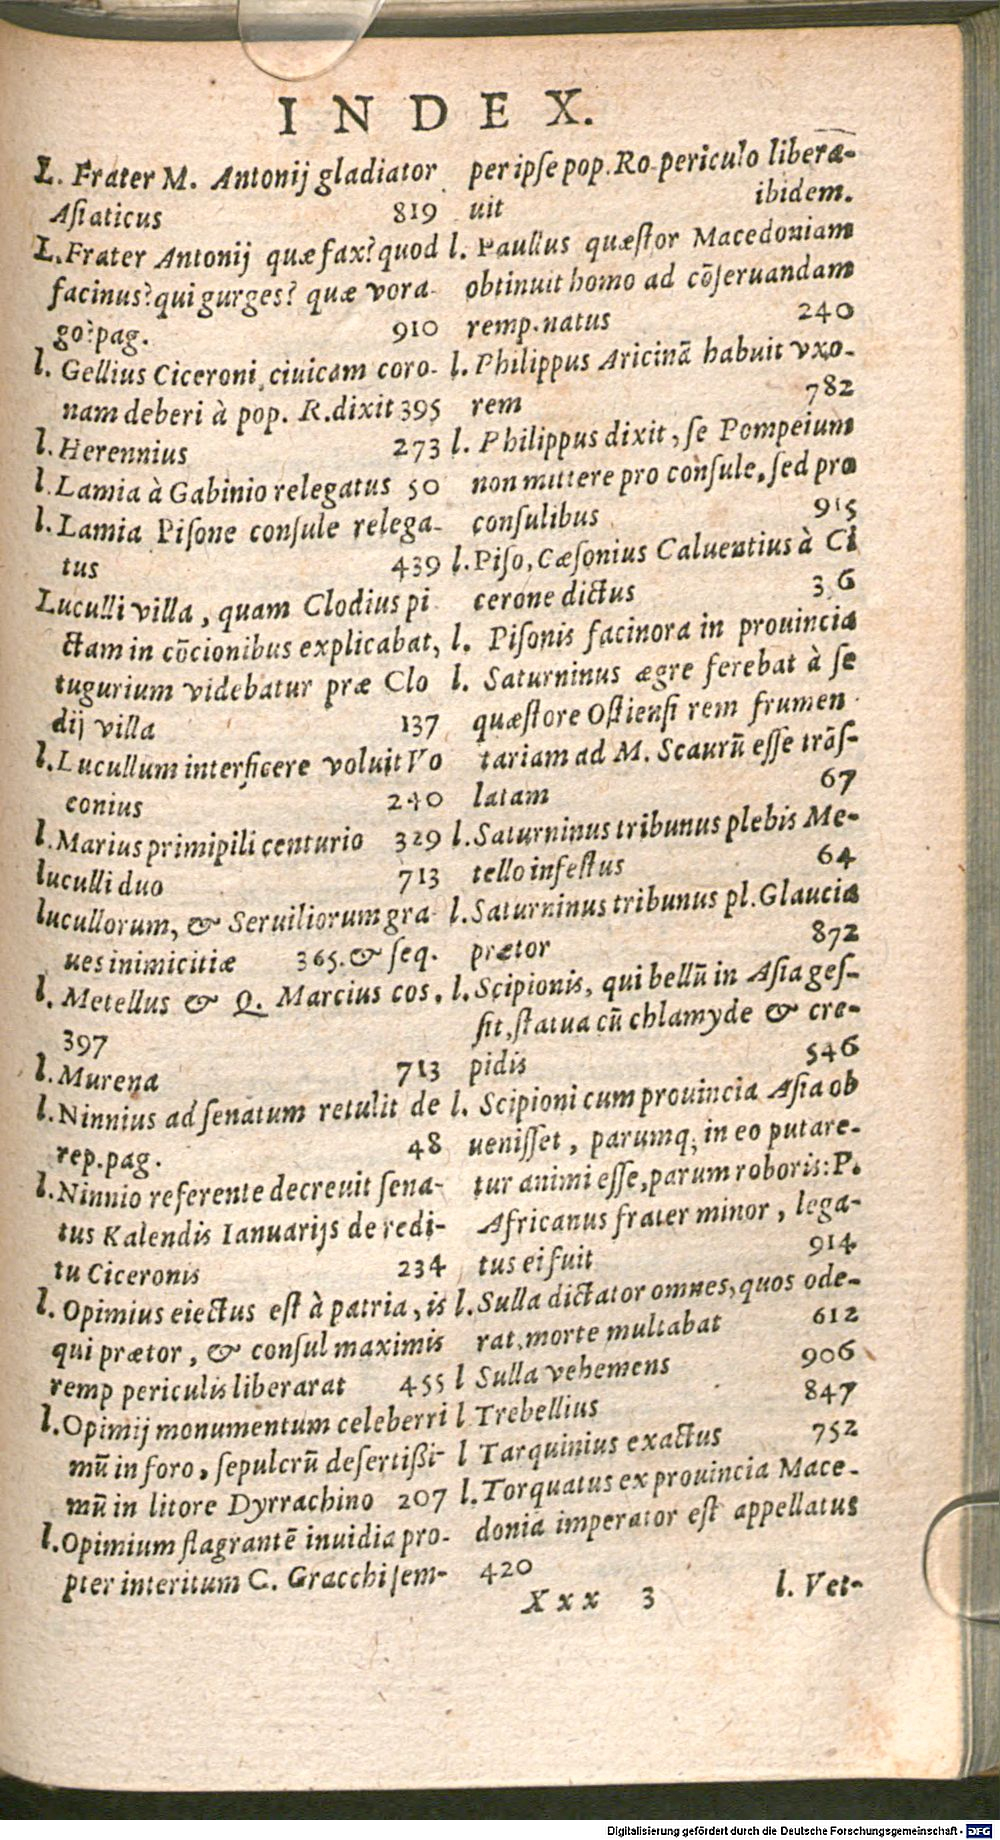 INDEX.
L. Frater M. Antonij gladiator
Aſiaticus 819
L. Frater Antonij quæ fax? quod
facinus? qui gurges? quæ vora-
go? pag. 910
l. Gellius Ciceroni ciuicam coro-
nam deberi à pop. R. dixit 395
l. Herennius 273
l. Lamia à Gabinio relegatus 50
l. Lamia Piſone conſule relega-
tus 439
Luculli villa, quam Clodius pi
ctam in cōcionibus explicabat,
tugurium videbatur præ Clo
dij villa 137
l. Lucullum interficere voluit Vo
conius 240
l. Marius primipili centurio 329
luculli duo 713
lucullorum, & Seruiliorum gra
ues inimicitiæ 365. & ſeq.
l. Metellus & Q. Marcius cos.
397
l. Murena 713
l. Ninnius ad ſenatum retulit de
rep. pag. 48
l. Ninnio referente decreuit ſena-
tus Kalendis Ianuarijs de redi-
tu Ciceronis 234
l. Opimius eiectus eſt à patria, is
qui prætor, & conſul maximis
remp periculis liberarat 455
l. Opimij monumentum celeberri
mū in foro, ſepulcrū deſertißi-
mū in litore Dyrrachino 207
l. Opimium flagrantē inuidia pro-
pter interitum C. Gracchi ſem-
per ipſe pop. Ro. periculo libera-
uit ibidem.
l. Paullus quæſtor Macedoniam
obtinuit homo ad cōſeruandam
remp. natus 240
l. Philippus Aricinā habuit vxo-
rem 782
l. Philippus dixit, ſe Pompeium
non mittere pro conſule, ſed pro
conſulibus 915
l. Piſo, Cæſonius Caluentius à Ci
cerone dictus 3 6
l. Piſonis facinora in prouincia
l. Saturninus ægre ferebat à ſe
quæſtore Oſtienſi rem frumen
tariam ad M. Scaurū eſſe trāſ-
latam 67
l. Saturninus tribunus plebis Me-
tello infeſtus 64
l. Saturninus tribunus pl. Glaucia
prætor 872
l. Scipionis, qui bellū in Aſia geſ-
ſit, ſtatua cū chlamyde & cre-
pidis 546
l. Scipioni cum prouincia Aſia ob
ueniſſet, parumq; in eo putare-
tur animi eſſe, parum roboris: P.
Africanus frater minor, lega-
tus ei fuit 914
l. Sulla dictator omnes, quos ode-
rat, morte multabat 612
l Sulla vehemens 906
l Trebellius 847
l Tarquinius exactus 752
l. Torquatus ex prouincia Mace-
donia imperator eſt appellatus
420
Xxx 3 l. Vet-
Digitalisierung gefördert durch die Deutsche Forschungsgemeinschaft - DFG